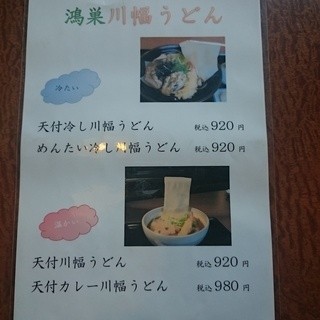 鴻巣川幅うどん
冷たい
天付冷し川幅うどん 税込 920 円
めんたい冷し川幅うどん 税込 920 円
温かい
天付川幅うどん 税込 920 円
天付カレー川幅うどん 税込 980 円